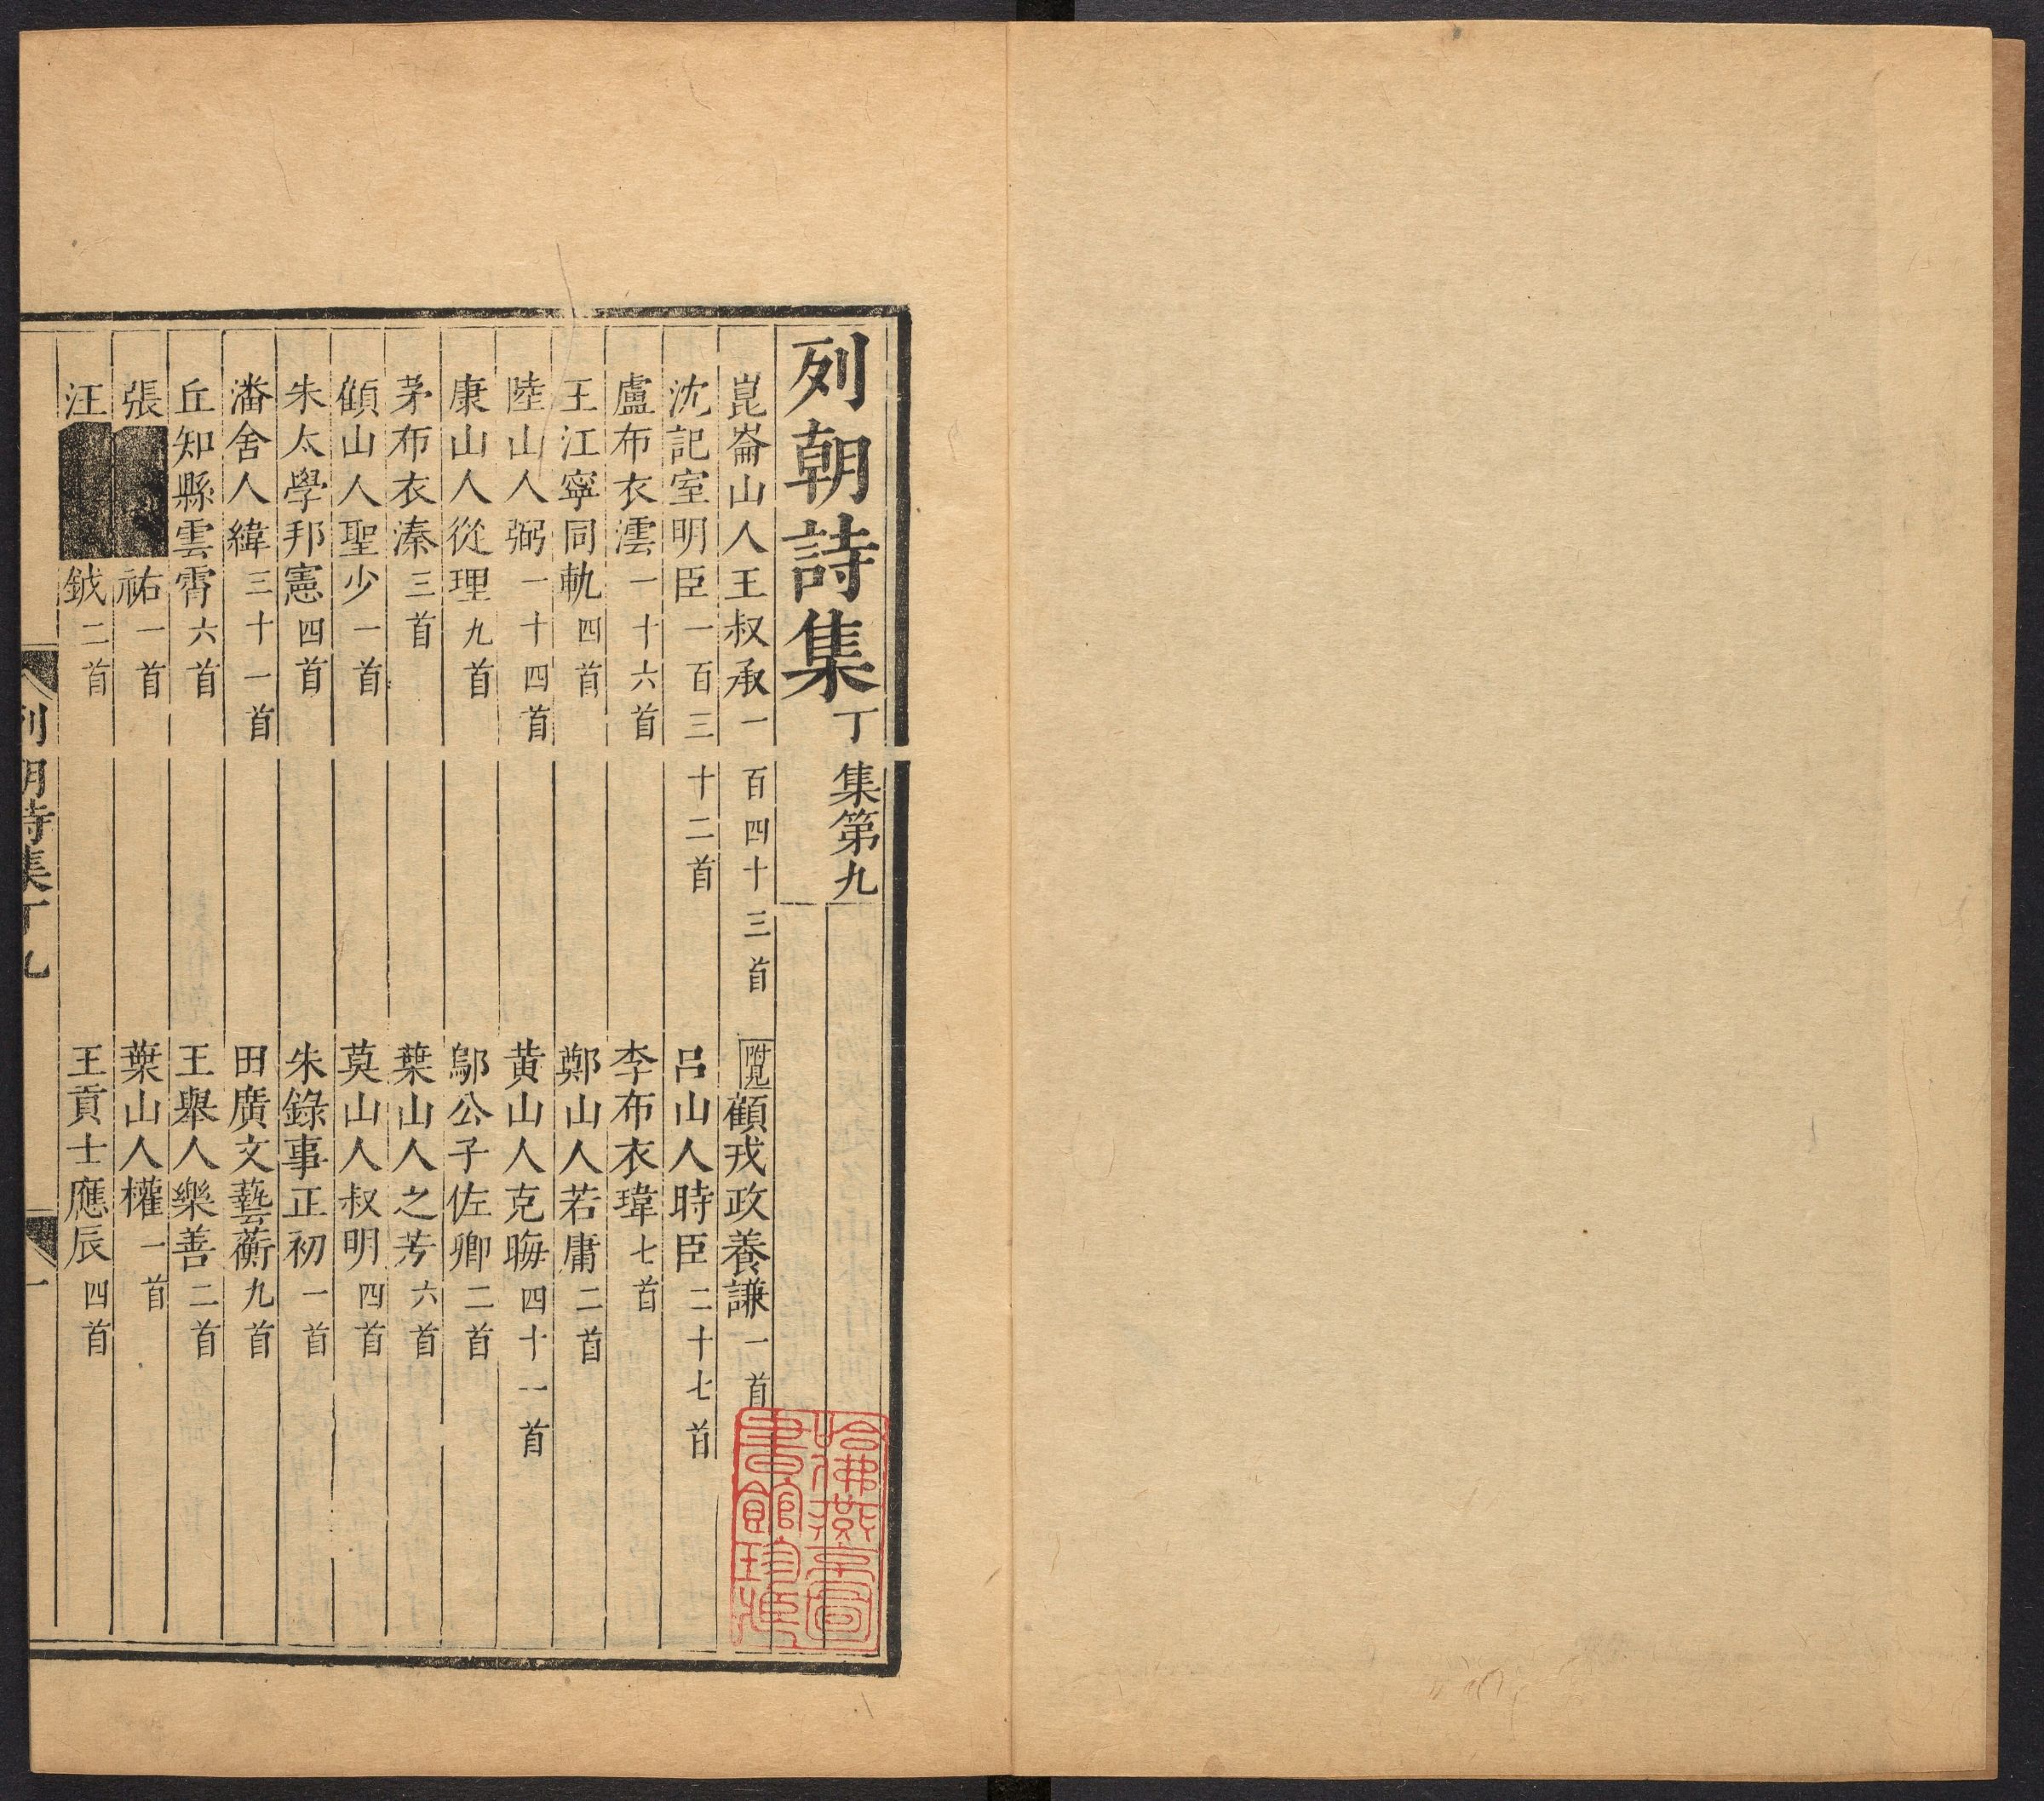 列朝詩集丁集第九
崑崙山人王叔承一百四十三首 附見顧戎政養謙一首
沈記室明臣一百三十二首 呂山人時臣二十七首
盧布衣澐一十六首 李布衣瑋七首
王江寧同軌四首 鄭山人若庸二首
陸山人弼一十四首 黃山人克晦四十一首
康山人從理九首 鄔公子佐卿二首
茅布衣溱三首 葉山人之芳六首
顧山人聖少一首 莫山人叔明四首
朱太學邦憲四首 朱錄事正初一首
潘舍人緯三十一首 田廣文藝蘅九首
丘知縣雲霄六首 王舉人樂善二首
張 祐一首 葉山人權一首
汪 鉞二首 王貢士應辰四首
列朝詩集丁九 一
哈佛燕京圖書館珍藏